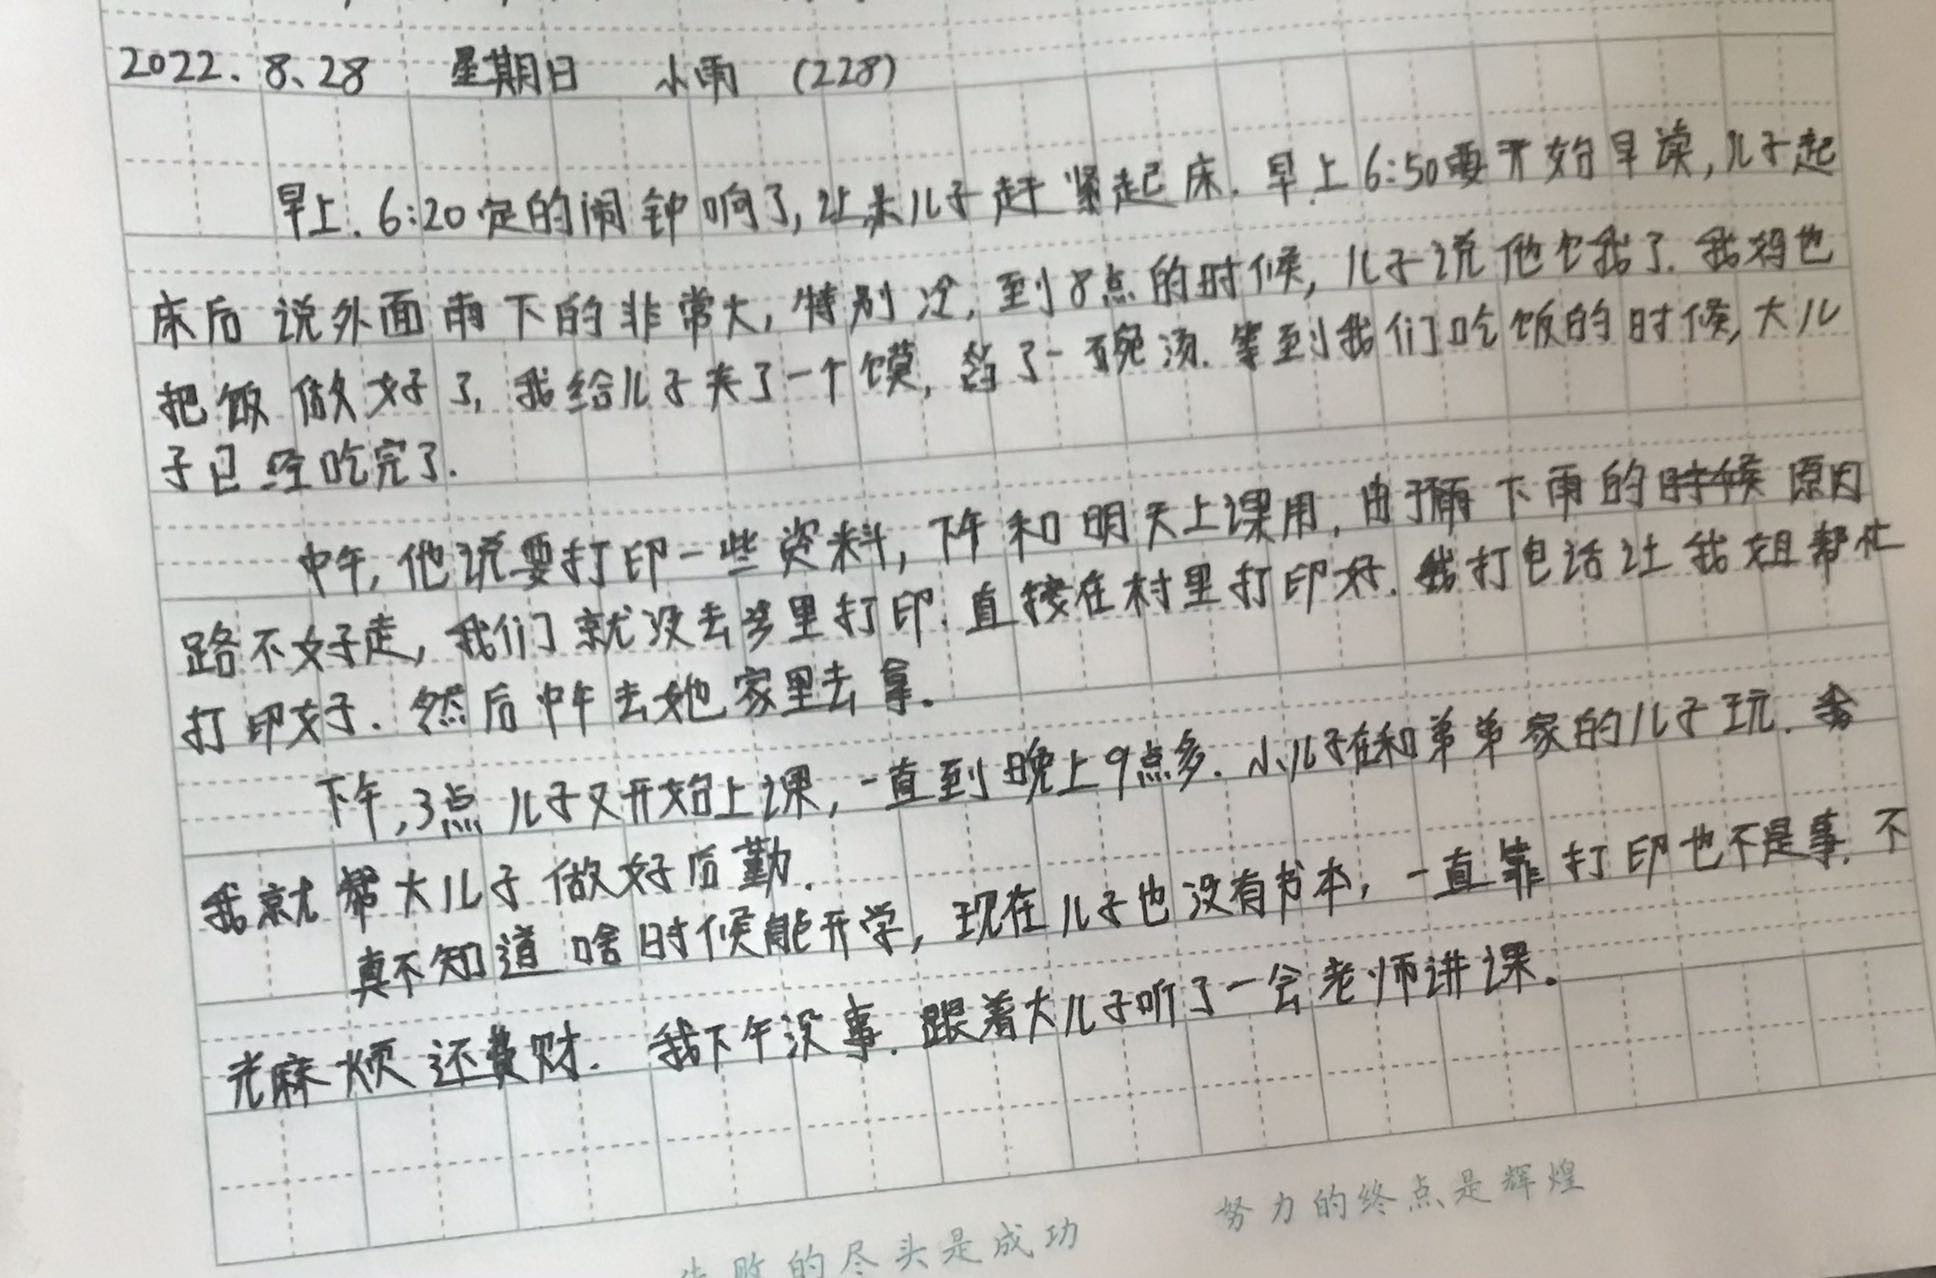 2022.8.28 星期日 小雨 (228)
早上.6:20定的闹钟响了,让大儿子赶紧起床.早上6:50要开始早读,儿子起
床后说外面雨下的非常大,特别冷,到8点的时候,儿子说他饿了.我妈也
把饭做好了,我给儿子夹了一个馍,舀了一碗汤.等到我们吃饭的时候,大儿
子已经吃完了.
中午,他说要打印一些资料,下午和明天上课用,由于下雨的原因
路不好走,我们就没去乡里打印.直接在村里打印好.我打电话让我姐帮忙
打印好.然后中午去她家里去拿。
下午,3点儿子又开始上课,一直到晚上9点多.小儿子在和弟弟家的儿子玩.
我就帮大儿子做好后勤.
真不知道啥时候能开学,现在儿子也没有书本,一直靠打印也不是事.不
光麻烦还费财.我下午没事.跟着大儿子听了一会老师讲课。
努力的终点是辉煌
失败的尽头是成功